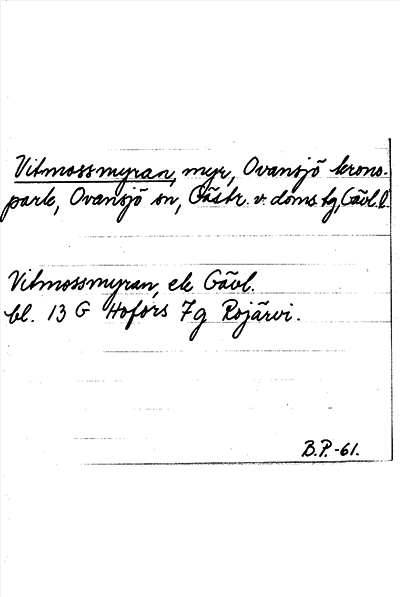 Vitmossmyran, myr, Ovansjö krono-
park, Ovansjö sn, Gästr. v. doms tg, Gävl. l.
Vitmossmyran, ek Gävl.
bl. 13 G Hofors 7g Rojärvi.
B.P.-61.